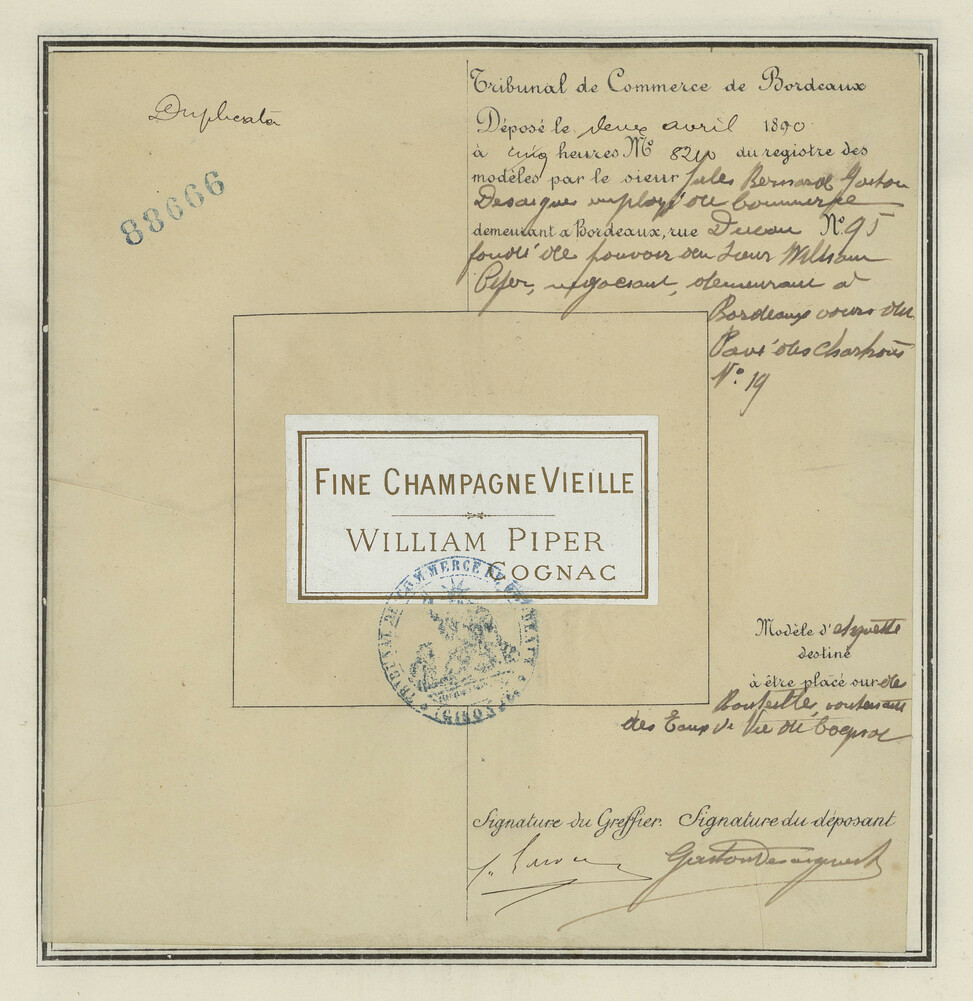 Duplicata
88666
Tribunal de Commerce de Bordeaux
Déposé le deux avril 1890
à cinq heures No 8210 du registre des
modèles par le sieur Jules Bernard Gaston
Desaigues employé de Commerce
demeurant à Bordeaux, rue Ducau No. 95
fondé de pouvoir du Sieur William
Piper, négociant, demeurant à
Bordeaux cours du
Pavé des Chartrons
No. 19
FINE CHAMPAGNE VIEILLE
WILLIAM PIPER
COGNAC
TRIBUNAL DE COMMERCE DE BORDEAUX
Modèle d'étiquette
destiné
à être placé sur de
Bouteille, contenant
des Eaux de Vie de Cognac
Signature du Greffier. Signature du déposant